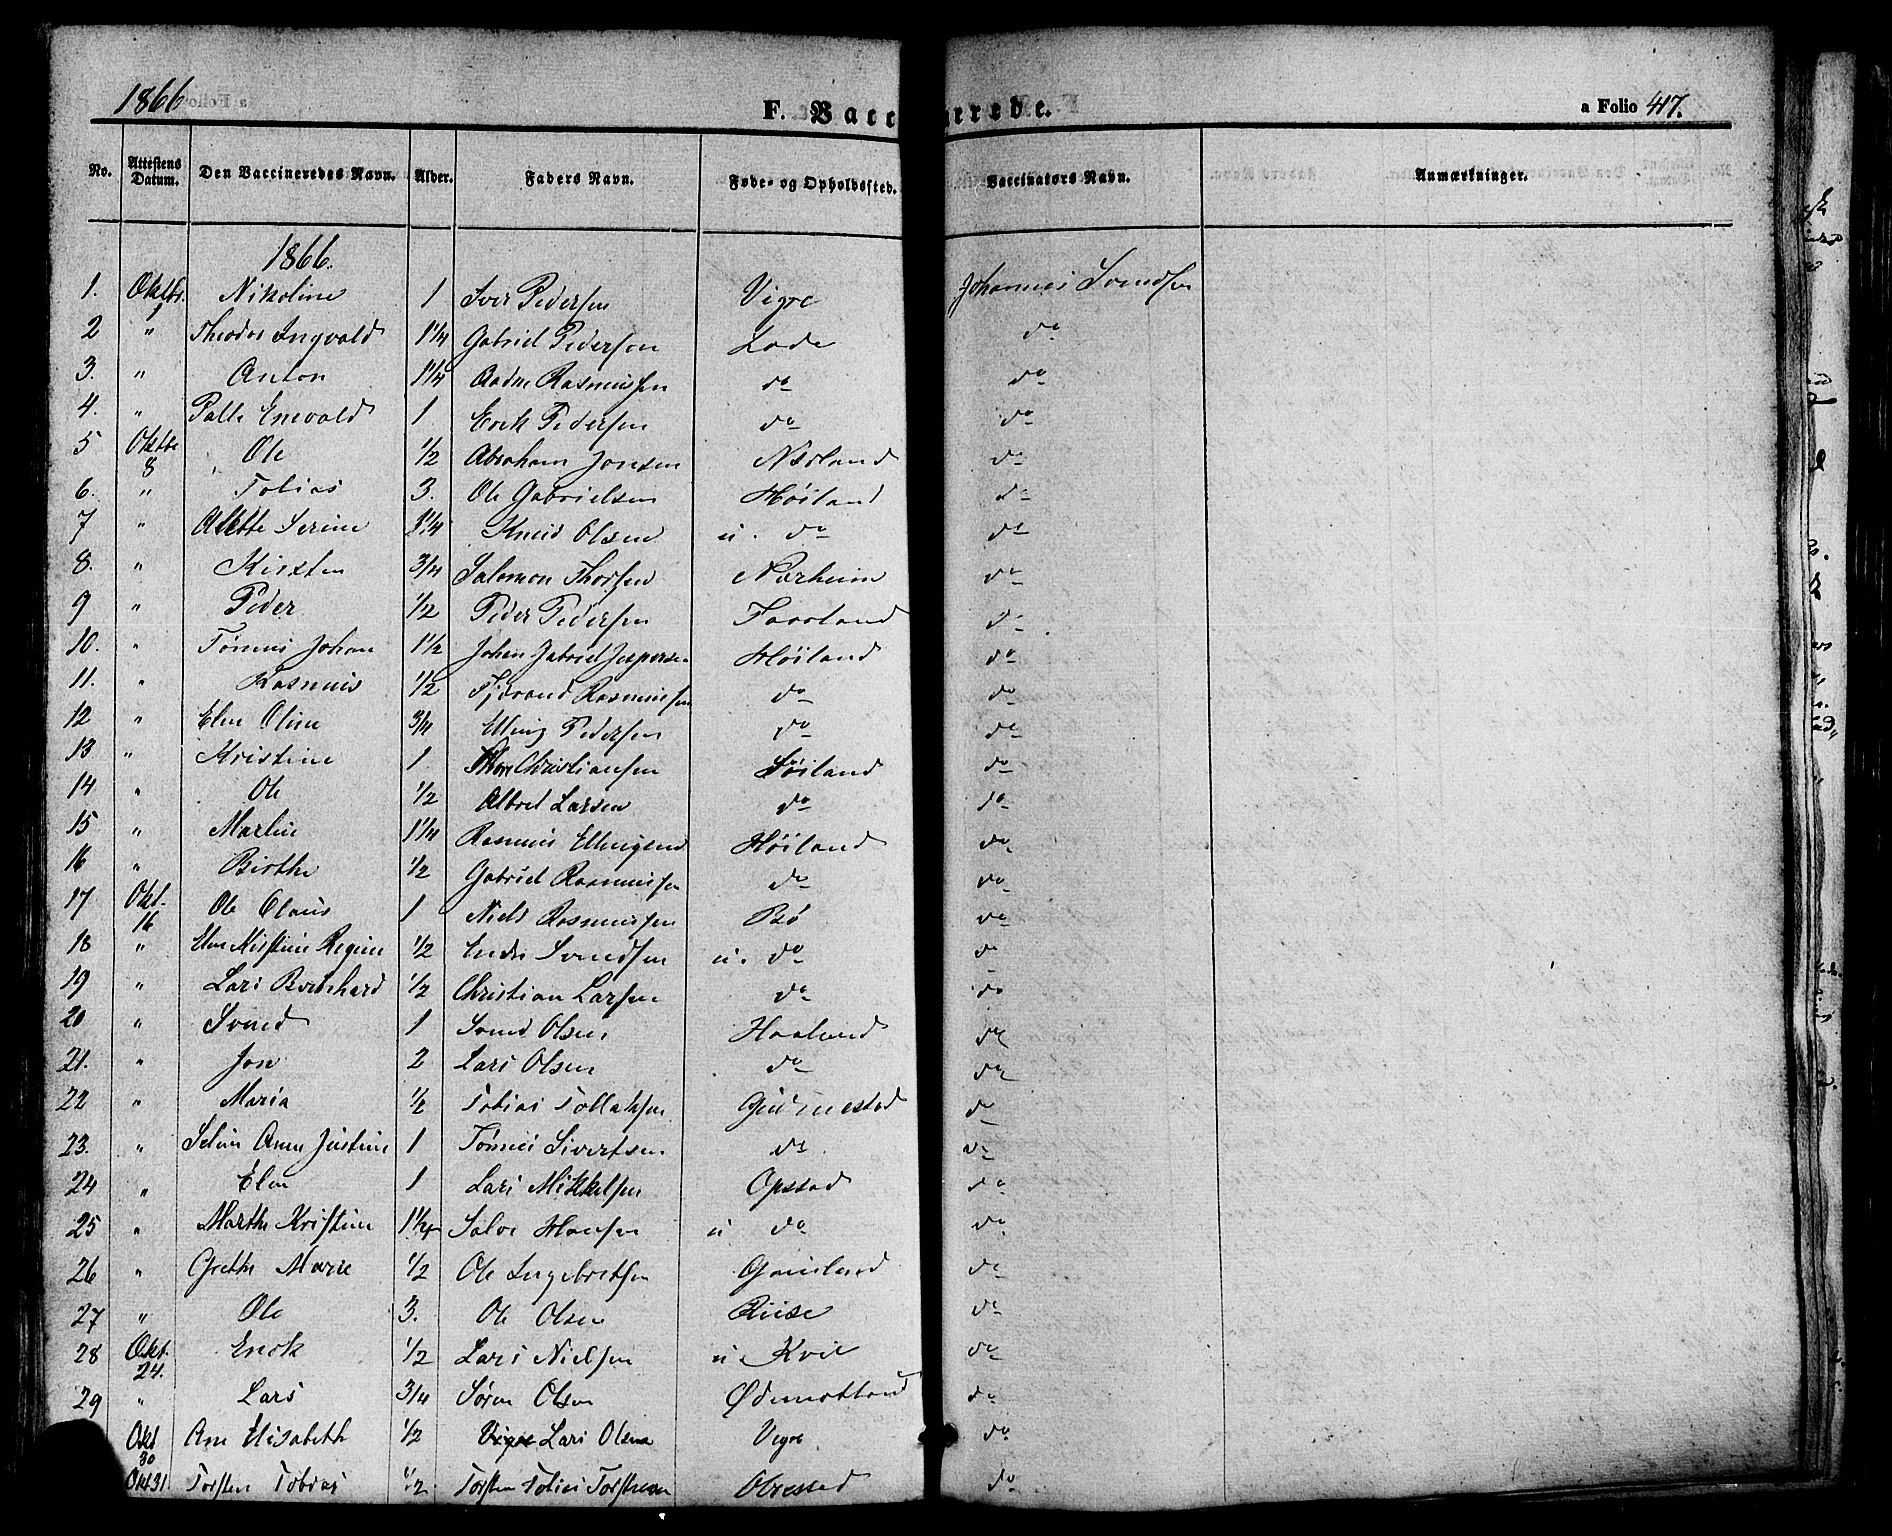 1866
F. Vacc
rrede.
a Folio 417.
No. Attestens Datum. Den Vaccineredes Navn. Alder. Faders Navn. Føde- og Opholdssted. Vaccinators Navn. Anmærkninger.
1866.
1. Oktbr. Nikoline 1 Iver Pedersen Vigre Johannes Svendsen
2 " Theodor Ingvald 1 1/4 Gabriel Pedersen Lode do
3. " Anton 1 1/4 Aadne Rasmussen do do
4. " Palle Enevald 1 Erik Pedersen do do
5 Oktbr 8 Ole 1/2 Abraham Jonsen Nærland do
6. " Tobias 3. Ole Gabrielsen Høiland do
7 " Alette Serine 1 1/4 Knud Olsen u. do do
8. " Kirsten 3/4 Salomon Thorsen Nærheim do
9 " Peder 1/2 Peder Pedersen do
10. " Tønnes Johan 1 1/2 Johan Gabriel Jespersen Høiland do
11. " Rasmus 1/2 Tjerand Rasmussen do do
12 " Elen Oline 3/4 Elling Pedersen do do
13 " Kristine 1 Thore Christiansen Høiland do
14 " Ole 1/2 Albret Larsen do do
15 " Martin 1 1/4 Rasmus Høiland do
16 " Birthe 1/2 Gabriel Rasmussen do do
17 Okt. 16 Ole Claus 1 Niels Rasmussen Bø do
18 " Elen Kistine Regine 1/2 Endre Svendsen u. do do
19 " Lars Bernhard 1/2 Christian Larsen do do
20 " Svend 1 Svend Olsen Haaland do
21. " Jon 2 Lars Olsen do do
22 " Maria 1/2 Tobias Tollaksen Gudmestad do
23. " Seline Anne Justine 1 Tønnes Sivertsen do do
24 " Elen 1 Lars Mikkelsen Opstad do
25 " Marthe Kristine 1 1/4 Salve Hansen u do do
26 " Grethe Marie 1/2 Ole Ingebretsen do
27 " Ole 3. Ole Olsen do
28 Okt. 24. Enok 1/2 Lars Nielsen u. Kvie do
29 " Lars 3/4 Søren Olsen Ødemotland do
Okt 30 Ane Elisabeth 1/2 Lars Olsen Vigre do
Okt 31 Torsten Tobias 1/2 Torsten Tobias Torstensen Obrestad do